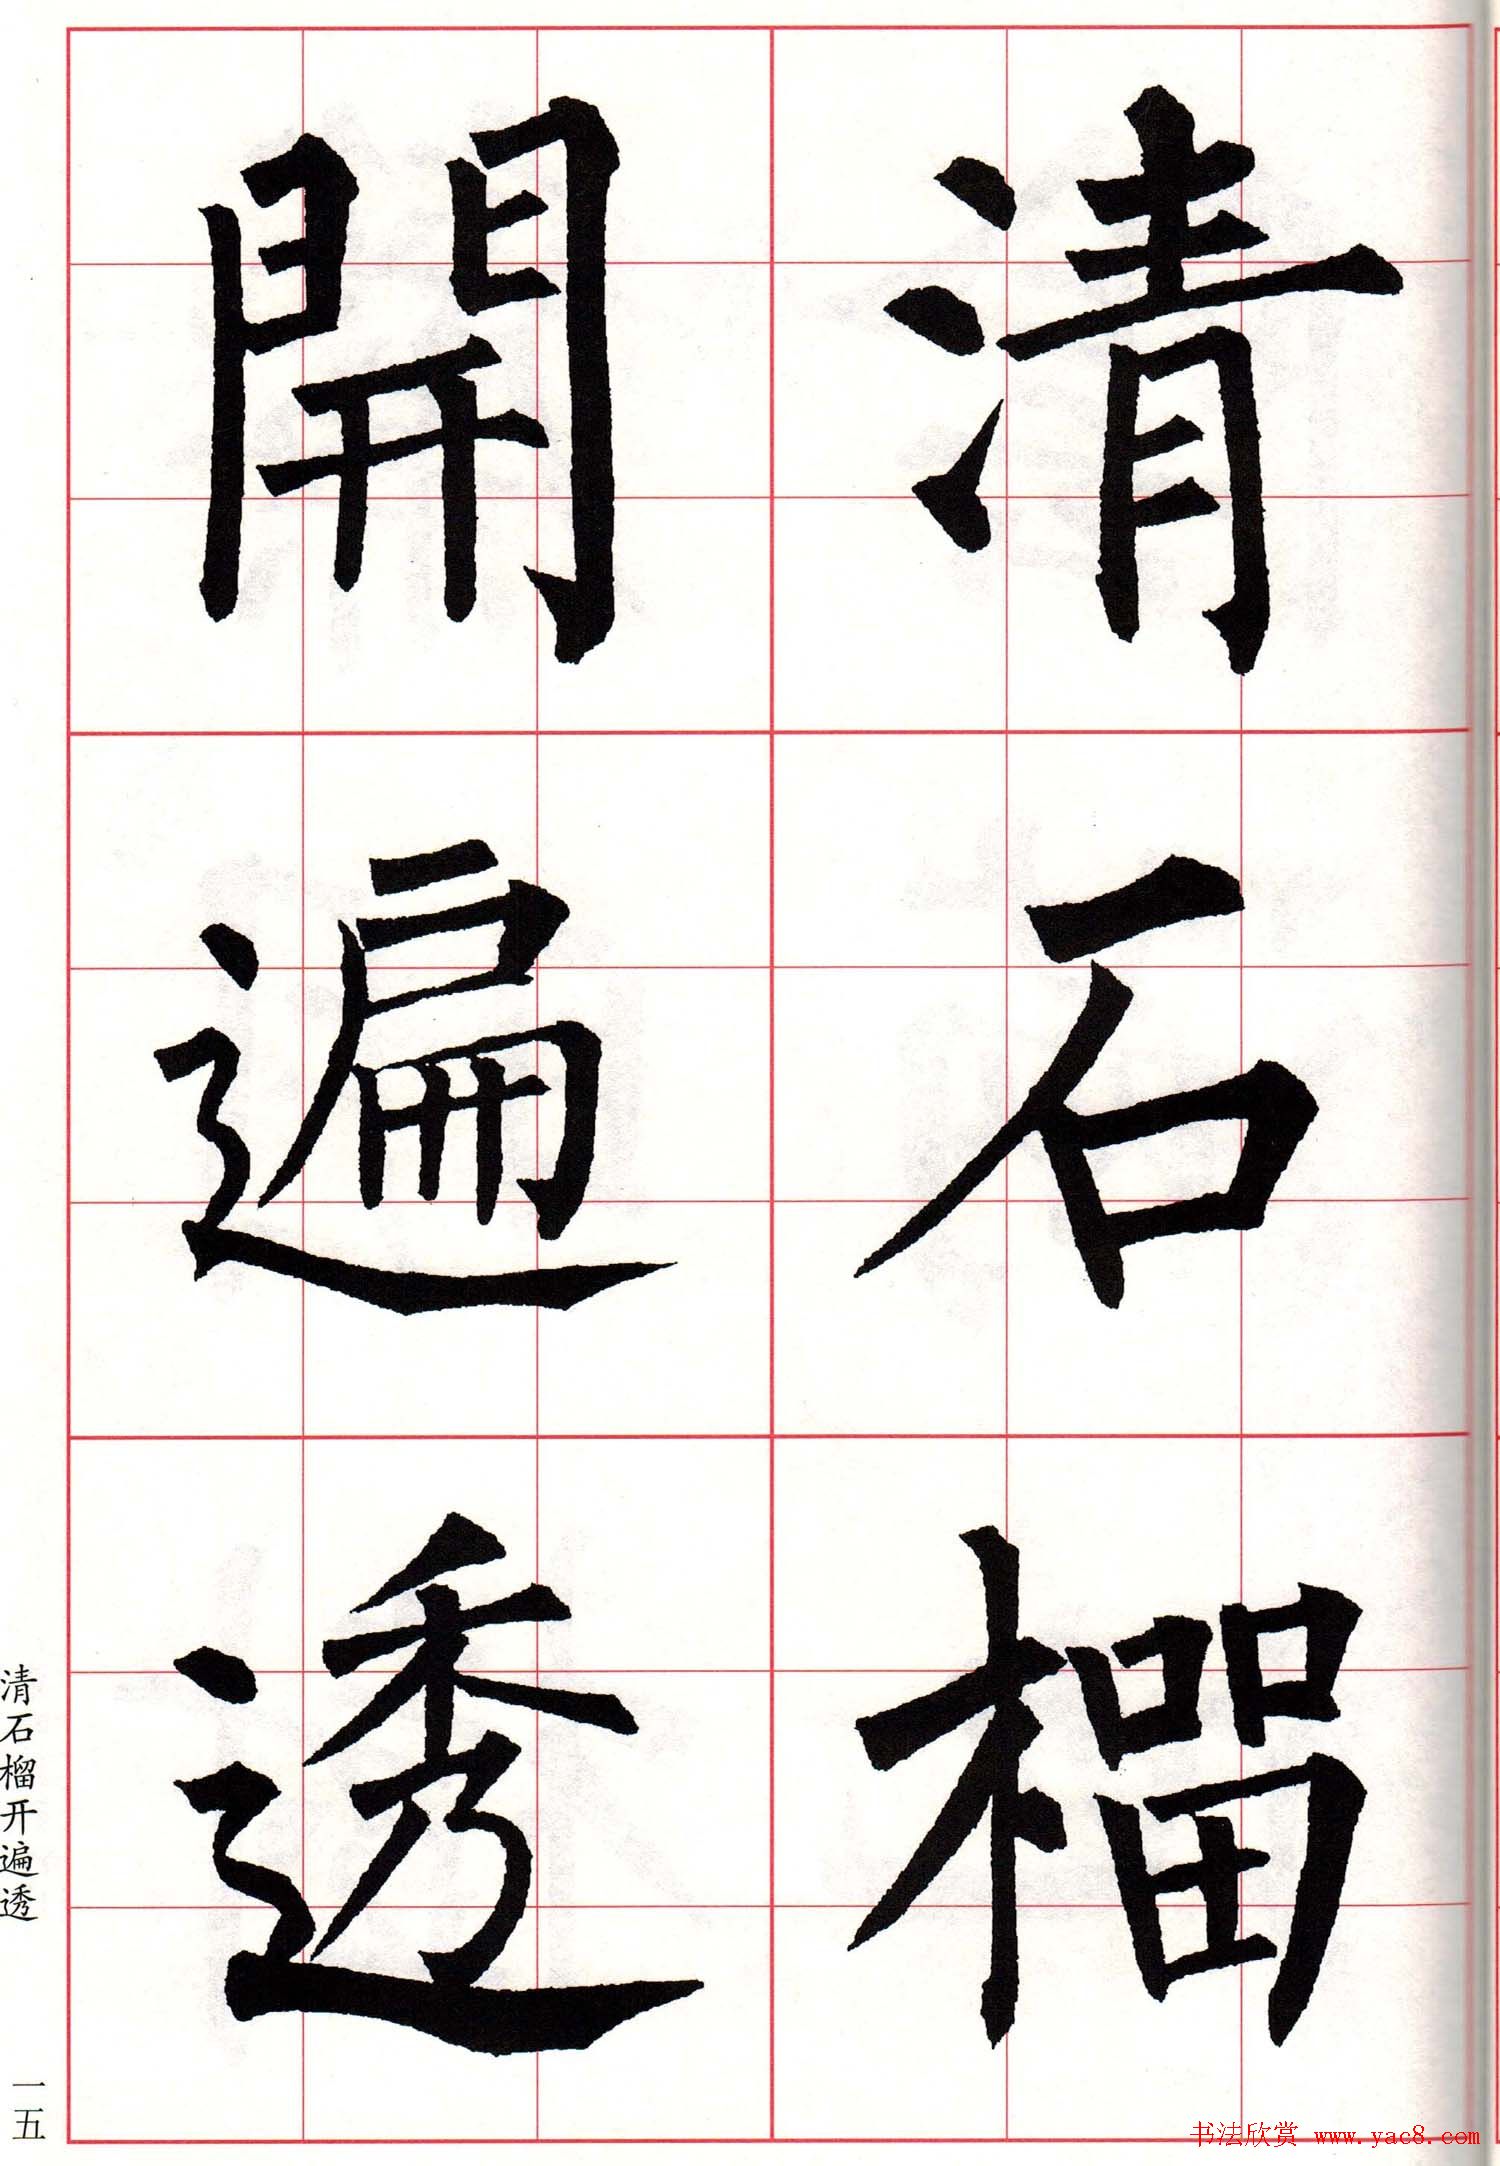 清石榴
開遍透
清石榴开遍透
一五
书法欣赏 www.yac8.com